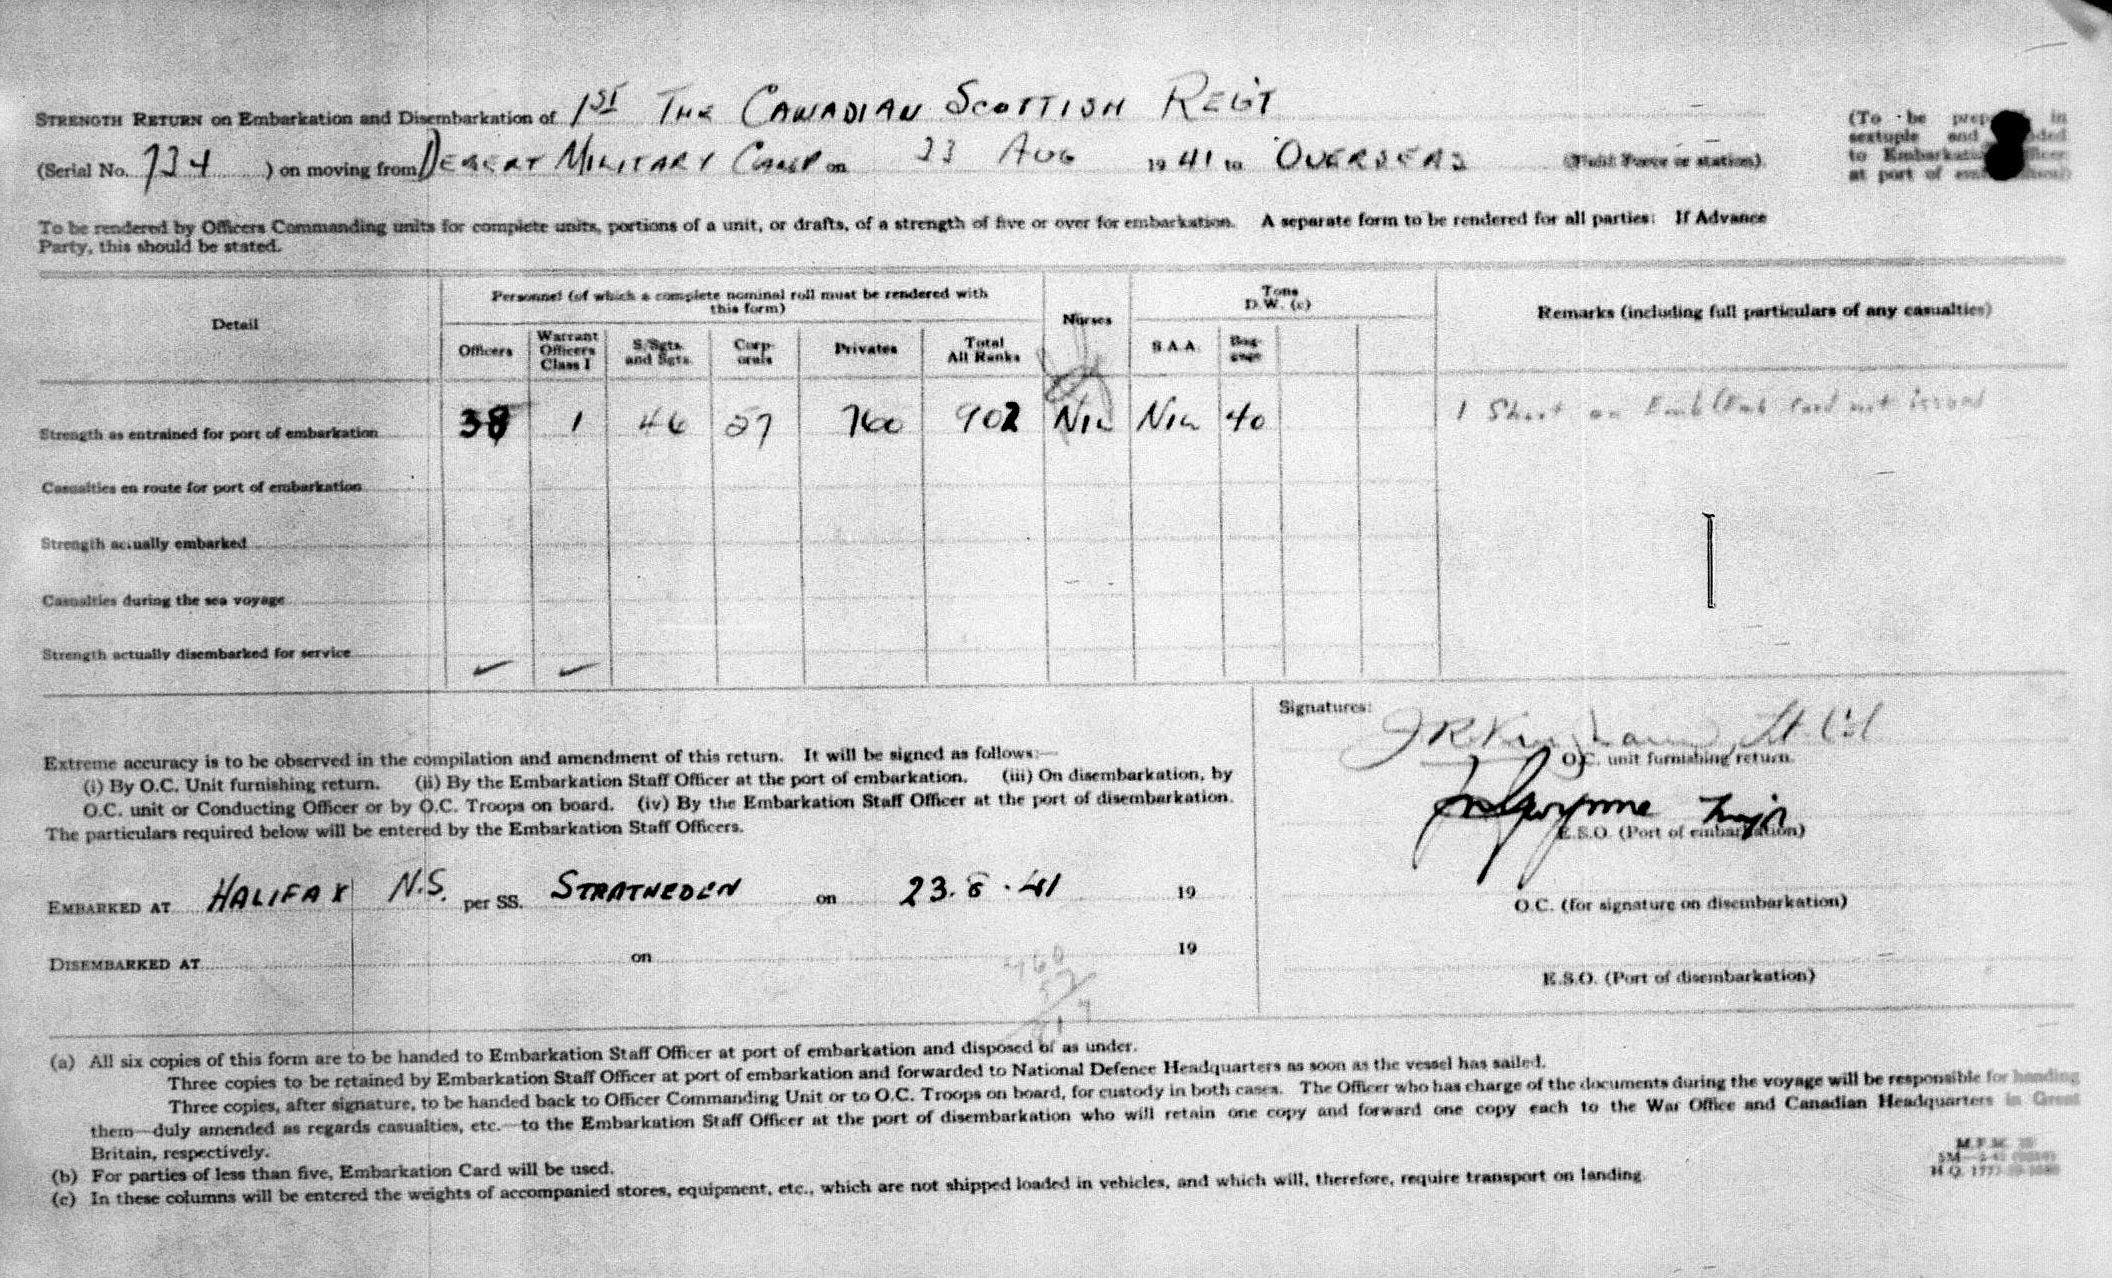 STRENGTH RETURN on Embarkation and Disembarkation of 1ST THE CANADIAN SCOTTISH REG'T
(Serial No. 734 ) on moving from DEBERT MILITARY CAMP on 23 AUG 19 41 to OVERSEAS (Field Force or station).
(To be prepared in
sextuple and handed
to Embarkation Officer
at port of embarkation)
To be rendered by Officers Commanding units for complete units, portions of a unit, or drafts, of a strength of five or over for embarkation. A separate form to be rendered for all parties: If Advance
Party, this should be stated.
Detail
Personnel (of which a complete nominal roll must be rendered with
this form)
Officers
Warrant
Officers
Class I
S/Sgts.
and Sgts.
Corp-
orals
Privates
Total
All Ranks
Nurses
Tons
D.W. (c)
S.A.A.
Bag-
gage
Remarks (including full particulars of any casualties)
Strength as entrained for port of embarkation 38 1 46 57 760 902 NIL NIL 40 1 Short on Emb (Emb Card not issued
Casualties en route for port of embarkation
Strength actually embarked
Casualties during the sea voyage
Strength actually disembarked for service
Extreme accuracy is to be observed in the compilation and amendment of this return. It will be signed as follows:—
(i) By O.C. Unit furnishing return. (ii) By the Embarkation Staff Officer at the port of embarkation. (iii) On disembarkation, by
O.C. unit or Conducting Officer or by O.C. Troops on board. (iv) By the Embarkation Staff Officer at the port of disembarkation.
The particulars required below will be entered by the Embarkation Staff Officers.
EMBARKED AT HALIFAX N.S. per SS. STRATHEDEN on 23.8.41 19
DISEMBARKED AT on 19
760
57
817
Signatures:
Lt Col
O.C. unit furnishing return.
Gwynne Major
E.S.O. (Port of embarkation)
O.C. (for signature on disembarkation)
E.S.O. (Port of disembarkation)
(a) All six copies of this form are to be handed to Embarkation Staff Officer at port of embarkation and disposed of as under.
Three copies to be retained by Embarkation Staff Officer at port of embarkation and forwarded to National Defence Headquarters as soon as the vessel has sailed.
Three copies, after signature, to be handed back to Officer Commanding Unit or to O.C. Troops on board, for custody in both cases. The Officer who has charge of the documents during the voyage will be responsible for handing
them—duly amended as regards casualties, etc.—to the Embarkation Staff Officer at the port of disembarkation who will retain one copy and forward one copy each to the War Office and Canadian Headquarters in Great
Britain, respectively.
(b) For parties of less than five, Embarkation Card will be used.
(c) In these columns will be entered the weights of accompanied stores, equipment, etc., which are not shipped loaded in vehicles, and which will, therefore, require transport on landing.
M.F.M.
H.Q. 1772